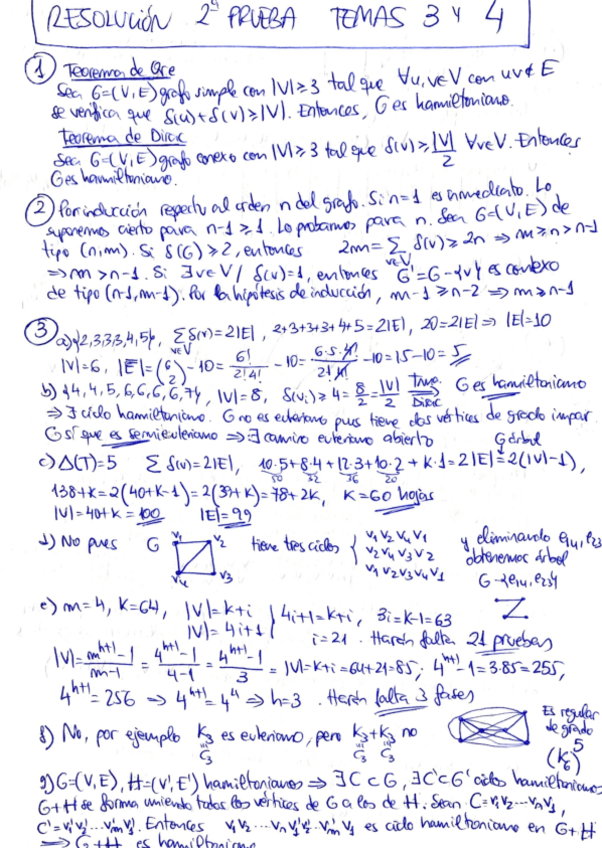 RESOLUCIÓN 2ª PRUEBA TEMAS 3 Y 4
① Teorema de Ore
Sea G=(V,E) grafo simple con |V|≥3 tal que ∀u,v∈V con uv∉E
se verifica que δ(u)+δ(v)≥|V|. Entonces, G es hamiltoniano.
Teorema de Dirac
Sea G=(V,E) grafo conexo con |V|≥3 tal que δ(v)≥|V|/2 ∀v∈V. Entonces
G es hamiltoniano.
② Por inducción respecto al orden n del grafo. Si n=1 es inmediato. Lo
suponemos cierto para n-1≥1. Lo probamos para n. Sea G=(V,E) de
tipo (n,m). Si δ(G)≥2, entonces 2m=∑δ(v)≥2n ⇒ m≥n>n-1
v∈V
⇒m>n-1. Si ∃v∈V/ δ(v)=1, entonces G'=G-{v} es conexo
de tipo (n-1,m-1). Por la hipótesis de inducción, m-1≥n-2 ⇒ m≥n-1
③ a) {2,3,3,3,4,5}, ∑δ(v)=2|E|, 2+3+3+3+4+5=2|E|, 20=2|E| ⇒ |E|=10
v∈V
|V|=6, |E̅|=(6 2)-10=6!/2!4!-10=6·5·4!/2!4!-10=15-10=5
b) {4,4,5,6,6,6,6,7}, |V|=8, δ(vi)≥4=8/2=|V|/2 Tma. Dirac ⇒ G es hamiltoniano
⇒ ∃ ciclo hamiltoniano. G no es euleriano pues tiene dos vértices de grado impar.
G sí que es semieuleriano ⇒ ∃ camino euleriano abierto
G árbol
c) Δ(T)=5 ∑δ(v)=2|E|, 10·5+8·4+12·3+10·2+K·1=2|E|=2(|V|-1),
50 32 36 20
138+K=2(40+K-1)=2(39+K)=78+2K, K=60 hojas
|V|=40+K=100 |E|=99
d) No pues G v1 v2 v4 v3 tiene tres ciclos { v1v2v4v1 y eliminando e14, e23
v2v4v3v2 obtenemos árbol
v1v2v3v4v1 G-{e14,e23}
e) m=4, K=64, |V|=K+i } 4i+1=K+i, 3i=K-1=63
|V|=4i+1 i=21. Harán falta 21 pruebas
|V|=m^(h+1)-1/m-1=4^(h+1)-1/4-1=4^(h+1)-1/3=|V|=K+i=64+21=85; 4^(h+1)-1=3·85=255,
4^(h+1)=256 ⇒ 4^(h+1)=4^4 ⇒ h=3. Harán falta 3 fases
f) No, por ejemplo K3 es euleriano, pero K3+K3 no
C3 C3 C3
Es regular
de grado
5
(K6)
g) G=(V,E), H=(V',E') hamiltonianos ⇒ ∃C⊂G, ∃C'⊂G' ciclos hamiltonianos
G+H se forma uniendo todos los vértices de G a los de H. Sean C=v1v2···vnv1,
C'=v1'v2'···vm'v1'. Entonces v1v2···vnv1'v2'···vm'v1 es ciclo hamiltoniano en G+H
⇒ G+H es hamiltoniano